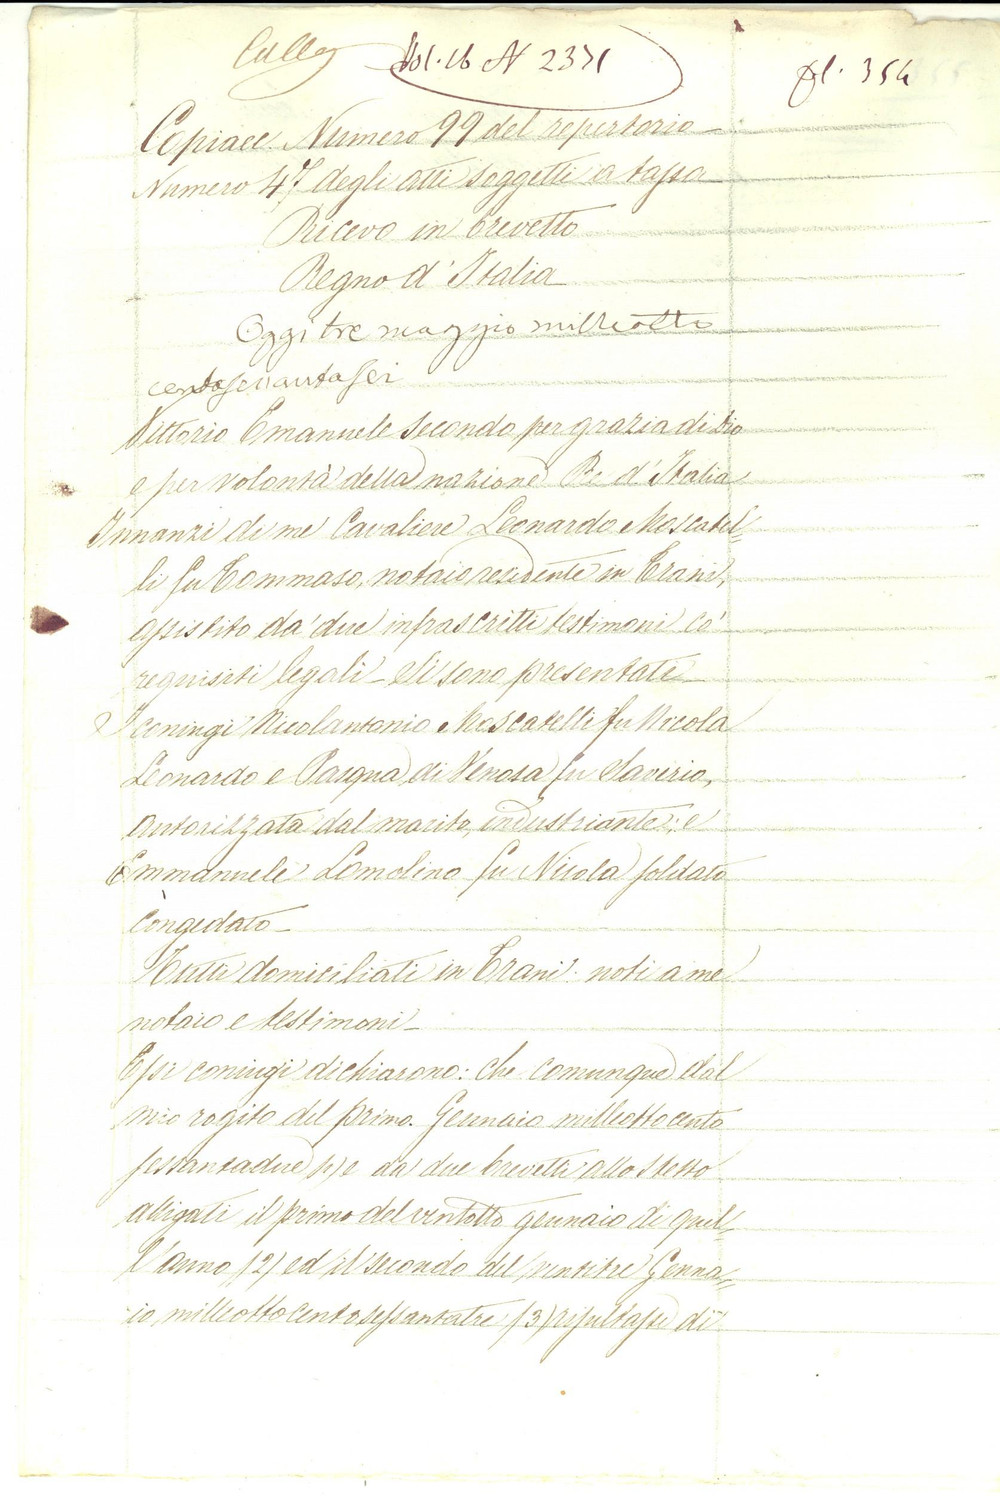 Vol. 16 N 2371
fl. 354
Copia ce. Numero 99 del repertorio
Numero 47 degli atti soggetti a tassa
Ricevo in brevetto
Regno d'Italia
Oggi tre maggio milleotto
centosessantasei
Vittorio Emanuele secondo per grazia di Dio
e per volontà della nazione Re d'Italia
Innanzi di me Cavaliere Leonardo Moscatel=
li fu Tommaso, notaio residente in Trani,
assistito da' due infrascritti testimoni co'
requisiti legali - Si sono presentati
I coniugi Nicolantonio Moscatelli fu Nicola
Leonardo e Pasqua di Venosa fu Saverio,
autorizzata dal marito, industriante; e
Emmanuele Lomolino fu Nicola soldato
congedato
Tutti domiciliati in Trani: noti a me
notaio e testimoni
Essi coniugi dichiarono: che comunque dal
mio rogito del primo Gennaio milleottocento
sessantadue (1) e da' due brevetti allo stesso
alligati il primo del ventotto gennaio di quel=
l'anno (2) ed il secondo del ventitre Genna=
io milleottocentosessantatre (3) risultasse di